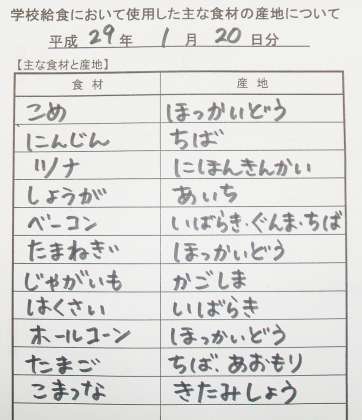 学校給食において使用した主な食材の産地について
平成 29 年 1 月 20 日分
【主な食材と産地】
食材 産地
こめ ほっかいどう
にんじん ちば
ツナ にほんきんかい
しょうが あいち
ベーコン いばらき・ぐんま・ちば
たまねぎ ほっかいどう
じゃがいも かごしま
はくさい いばらき
ホールコーン ほっかいどう
たまご ちば、あおもり
こまつな きたみしょう